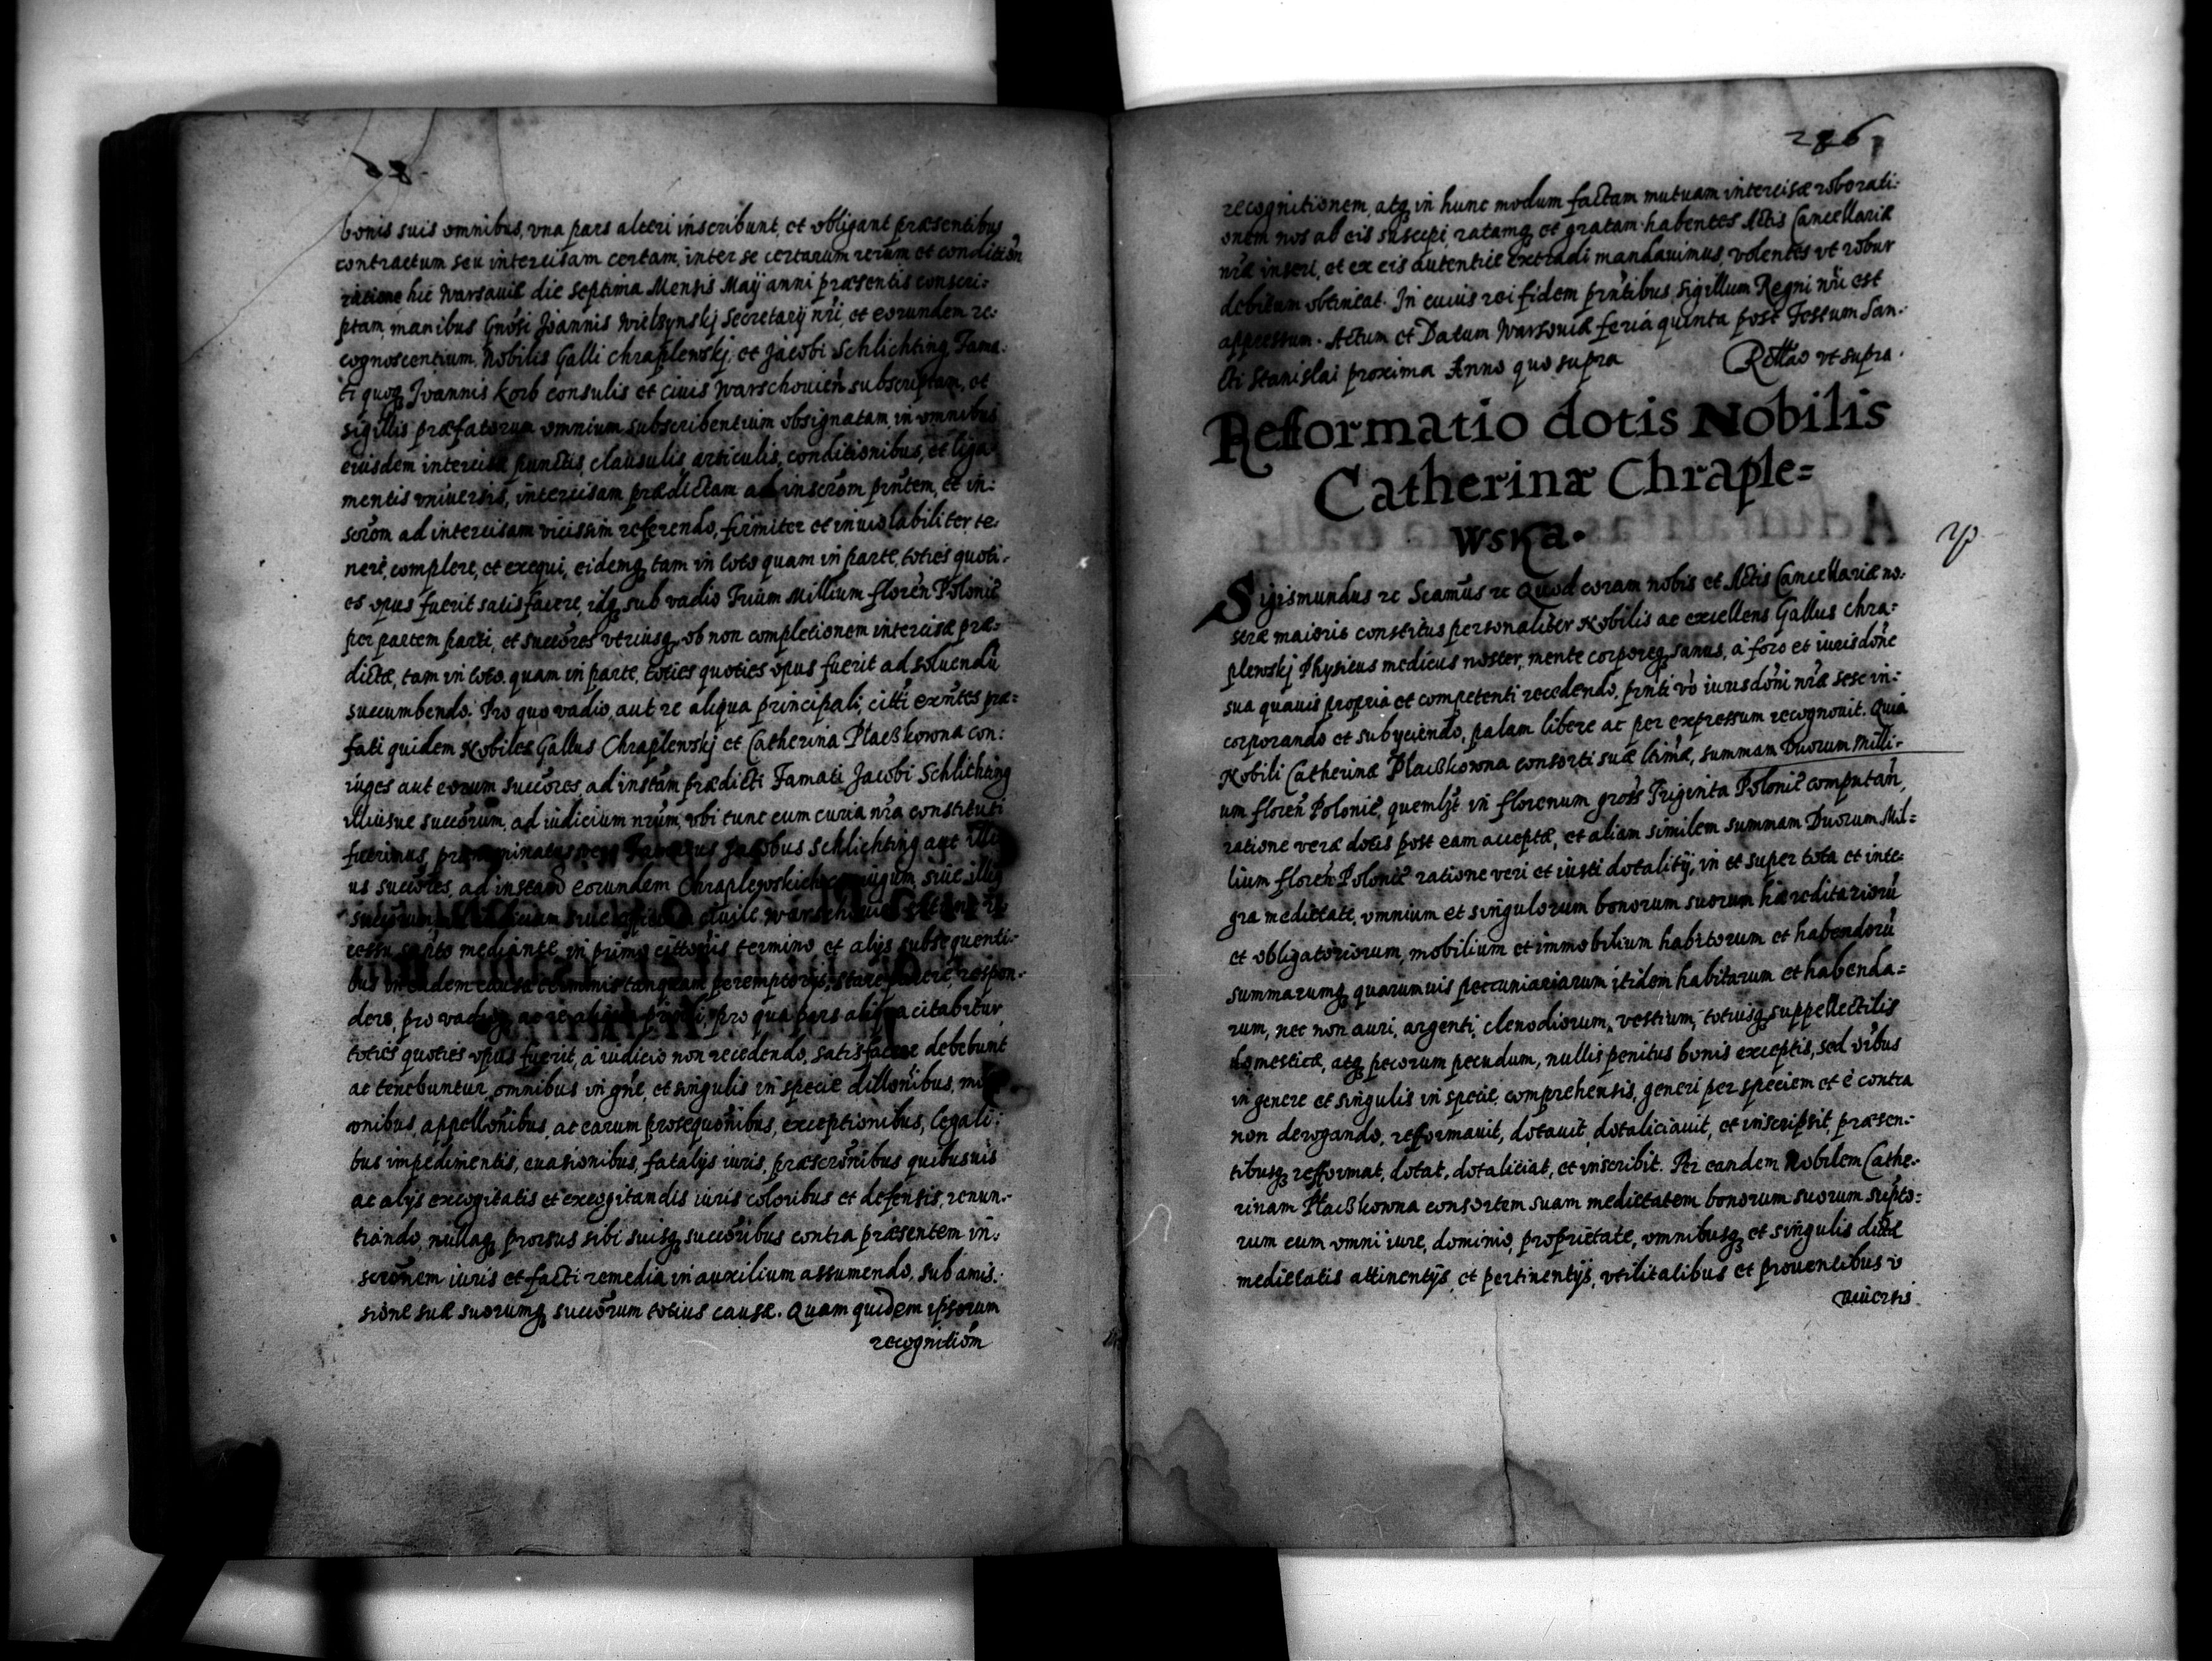 bonis suis omnibus, vna pars alteri inscribunt, et obligant præsentibus
contractum seu intercisam certam, inter se certarum rerum et condition
ratione hic Warsauiæ die septima Mensis Maij anni præsentis conscri:
ptam, manibus Gnosi Joannis Wielzynskj Secretarij nri, et eorundem re:
cognoscentium, Nobilis Galli Chraplewskj, et Jacobi Schlichting Fama:
ti quoq Joannis Korb consulis et ciuis Warschouien subscriptam, et
sigillis præfatorum omnium subscribentium obsignatam, in omnibus
eiusdem intercisæ punctis, clausulis, articulis, conditionibus, et liga
mentis vniuersis, intercisam prædictam ad inscrom pntem, et in:
scrom ad intercisam vicissim referendo, firmiter et inuiolabiliter te:
nere, complere, et exequi, eidemq tam in toto quam in parte, toties quoti:
es opus fuerit satisfacere, idq sub vadio Trium Millium floren Polonic
per partem parti, et succores vtriusq ob non completionem intercisæ præ:
dictæ, tam in toto quam in parte, toties quoties opus fuerit ad soluendu
succumbendo. Pro quo vadio, aut re aliqua principali, citti exntes præ:
fati quidem Nobiles Gallus Chraplewskj et Catherina Placßkowna con:
iuges aut eorum succores, ad instam prædicti Famati Jacobi Schlichting
illiusue succorum, ad iudicium nrum, vbi tunc cum curia nra constituti
fuerimus, Jacobus Schlichting aut illi
us succores, ad instam eorundem Chraplewskich coniugum, siue illoru
succorum, siue ciuile
mediante, in primo cittonis termino et alijs subsequenti:
bus in eadem causa terminis tanquam peremptorijs, stare, parere, respon:
dere, pro vadioq ac re aliqua prnli, pro qua pars aliqua citabitur,
toties quoties opus fuerit, à iudicio non recedendo, satisfacere debebunt
ac tenebuntur, omnibus in gne, et singulis in specie dillonibus,
onibus, appellonibus, ac earum prosequonibus, exceptionibus, legali:
bus impedimentis, euasionibus, fatalijs iuris, præscronibus quibusuis
ac alijs excogitatis et excogitandis iuris coloribus et defensis, renun:
tiando, nullaq prorsus sibi suisq succoribus contra præsentem in:
scronem iuris et facti remedia in auxilium assumendo, sub amis:
sione suæ suorumq succorum totius causæ. Quam quidem ipsorum
recognitiom
286
recognitionem, atq in hunc modum factam mutuam intercisæ roborati:
onem nos ab eis suscepi, ratamq et gratam habentes Actis Cancellariæ
nræ inseri, et ex eis autentice extradi mandauimus, volentes vt robur
debitum obtineat. In cuius rei fidem pntibus sigillum Regni nri est
appressum. Actum et Datum Warsouiæ feria quinta post Festum San:
cti Stanislai proxima Anno quo supra Rellao vt supra.
Refformatio dotis Nobilis
Catherinæ Chraple=
wska.
Sigismundus etc Seamus etc Quod coram nobis et Actis Cancellariæ no:
stræ maioris constitus personaliter Nobilis ac excellens Gallus Chra=
plewskj Physicus medicus noster, mente corporeq sanus, à foro et iurisdone
sua quauis propria et competenti recedendo, pnti vo iurisdoni nræ sese in:
corporando et subijciendo, palam libere ac per expressum recognouit. Quia
Nobili Catherinæ Placßkowna consorti suæ ltimæ, summam Duorum Milli:
um floren Polonic, quemlzt in florenum gross Triginta Polonic computan,
ratione veræ dotis post eam acceptæ, et aliam similem summam Duorum Mil=
lium floren Polonic ratione veri et iusti dotalitij, in et super tota et inte:
gra medietate, omnium et singulorum bonorum suorum hæreditarioru
et obligatoriorum, mobilium et immobilium habitorum et habendoru
summarumq quarumuis peccuniariarum itidem habitarum et habenda=
rum, nec non auri, argenti, clenodiorum, vestium, totiusq suppellectilis
domesticæ, atq pecorum pecudum, nullis penitus bonis exceptis, sed oibus
in genere et singulis in specie, comprehensis, generi per speciem et è contra
non derogando, refformauit, dotauit, dotaliciauit, et inscripsit, præsen:
tibusq refformat, dotat, dotaliciat, et inscribit. Per eandem Nobilem Cathe:
rinam Placßkowna consortem suam medietatem bonorum suorum supto:
rum cum omni iure, dominio, proprietate, omnibusq et singulis dictæ
medietatis attinentijs, et pertinentijs, vtilitatibus et prouentibus v
niuersis